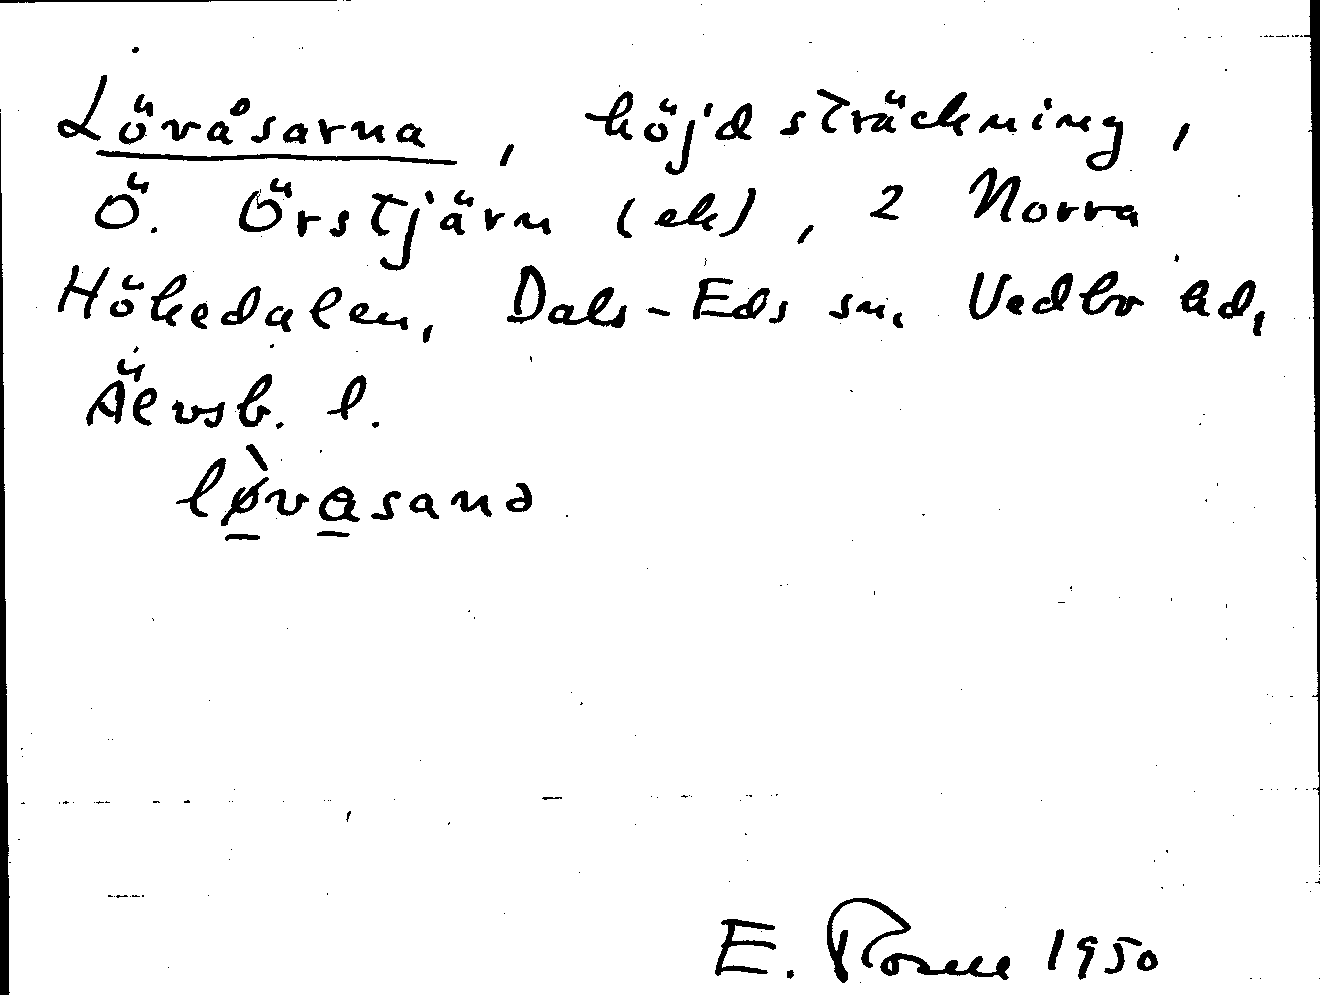 Lövåsarna, höjdsträckning,
Ö. Örstjärn (ek), 2 Norra
Hökedalen, Dals-Eds sn. Vedbo hd,
Älvsb. l.
lø̀vasanə
E. Rosell 1950